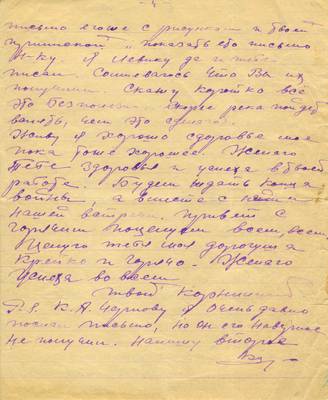 письмо вгоше с рисунком и твоей
припиской „ показать ему письмо
М-ку я Левику да и тебе
писал. Сомневаюсь что Вы их
получили Скажу коротко все
это бесполезно. Скорее река пойдет
вспять, чем это
Живу я хорошо здоровье мое
пока тоже хорошее. Желаю
тебе здоровья и успеха в твоей
работе. Будем ждать конца
войны, а вместе с ним и
нашей встречи. привет с
горячим поцелуем всем, всем.
Целую тебя моя дорогая
Крепко и Горячо. Желаю
Успеха во всем
твой
П.S. К.А. Чернову я очень давно
послал письмо, но он его наверное
не получил. Напишу второе